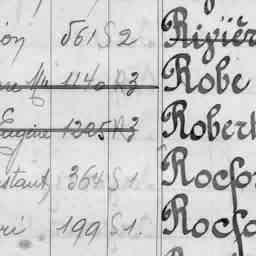 ión 561 S 2 Rivièr
1140 R3 Robe
Eugène 1225 R3 Robert
stant, 364 S 1. Rocfor
ri 199 S 1. Rocfo